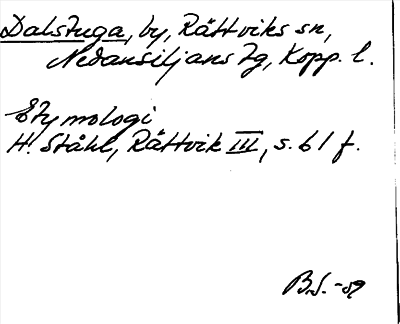 Dalstuga, by, Rättviks sn,
Nedansiljans tg, Kopp. l.
Etymologi
H. Ståhl, Rättvik III, s. 61 f.
B.S. -59